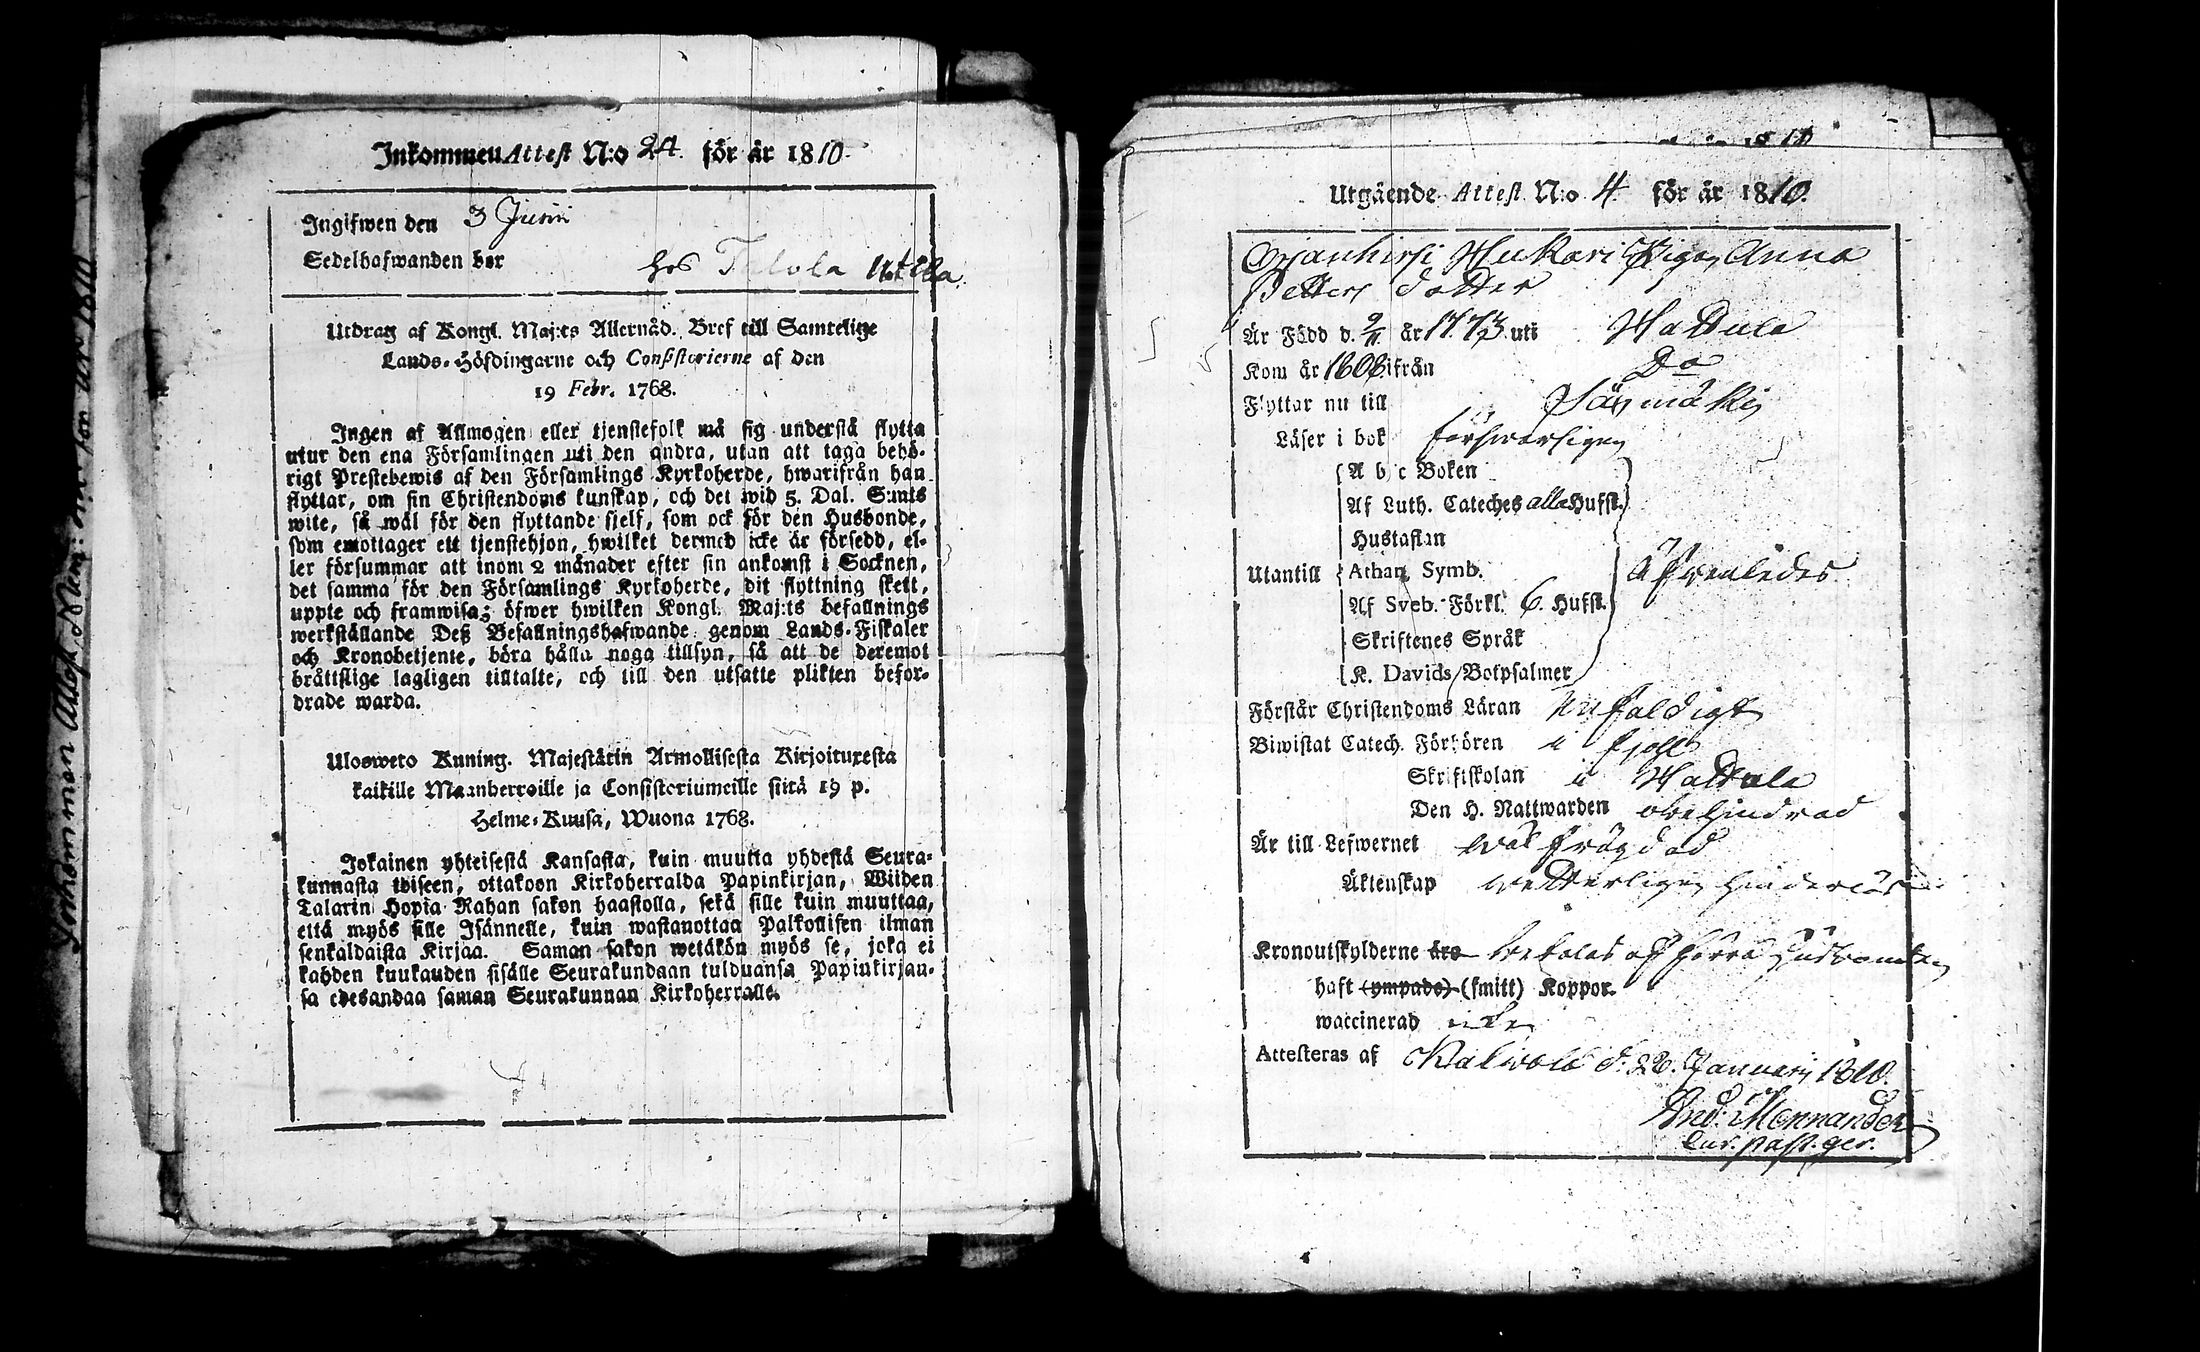 Inkommen Attest N:o 24. för år 1810.
Ingifwen den 3 Junii
Sedelhafwanden bor hos Talola Uttila
Utdrag af Kongl. Maj:ts Allernåd. Bref till Samtelige
Lands-Höfdingarne och Consistorierne af den
19 Febr. 1768.
Ingen af Allmogen eller tjenstefolk må sig understå flytta
utur den ena Församlingen uti den andra, utan att taga behö-
rigt Prestebewis af den Församlings Kyrkoherde, hwarifrån han
flyttar, om sin Christendoms kunskap, och det wid 5. Dal. S:mts
wite, så wäl för den flyttande sjelf, som ock för den Husbonde,
som emottager ett tjenstehjon, hwilket dermed icke är försedd, el-
ler försummar att inom 2 månader efter sin ankomst i Socknen,
det samma för den Församlings Kyrkoherde, dit flyttning skett,
uppte och framwisa; öfwer hwilken Kongl. Maj:ts befallnings
werkställande Deß Befallningshafwande genom Lands-Fiskaler
och Kronobetjente, böra hålla noga tillsyn, så att de deremot
bråttslige lagligen tilltalte, och till den utsatte plikten befor-
drade warda.
Ulosweto Kuning. Majestätin Armollisesta Kirjoituxesta
kaikille Maanherroille ja Consistoriumeille siitä 19 p.
Helme-Kuusa, Wuona 1768.
Jokainen yhteisestä Kansasta, kuin muutta yhdestä Seura-
kunnasta toiseen, ottakoon Kirkoherralda Papinkirjan, Wiiden
Talarin Hopia Rahan sakon haastolla, sekä sille kuin muuttaa,
että myös sille Isännelle, kuin wastanottaa Palkollisen ilman
senkaldaista Kirjaa. Saman sakon wetäkön myös se, joka ei
kahden kuukauden sisälle Seurakundaan tulduansa Papinkirjan-
sa edesandaa saman Seurakunnan Kirkoherralle.
Utgående Attest N:o 4. för år 1810.
Orjanhirsi Hukari Pigan Anna
Petters dotter
Är Född d. 9/11 år 1773 uti Hattula
Kom år 1808 ifrån Do
Flyttar nu till Säxmäki
Läser i bok förswarligen
A b c Boken
Af Luth. Cateches alla Hufst.
Hustaflan
Utantill Athan. Symb. Äfvenledes
Af Sveb. Förkl. 6. Hufst.
Skriftenes Språk
K. Davids Botpsalmer
Förstår Christendoms Läran enfaldigt
Biwistat Catech. Förhören i fjohl
Skriftskolan i Hattula
Den H. Nattwarden obehindrad
Är till Lefwernet wäl frägdad
Äktenskap wetterligen hinderlös
Kronoutskylderne äro betalas af förra Husbonden
haft (ympade) (smitt) Koppor.
waccinerad icke
Attesteras af Kalwola d. 28. Januarii 1810.
And. Mennander
Cur. past. ger.